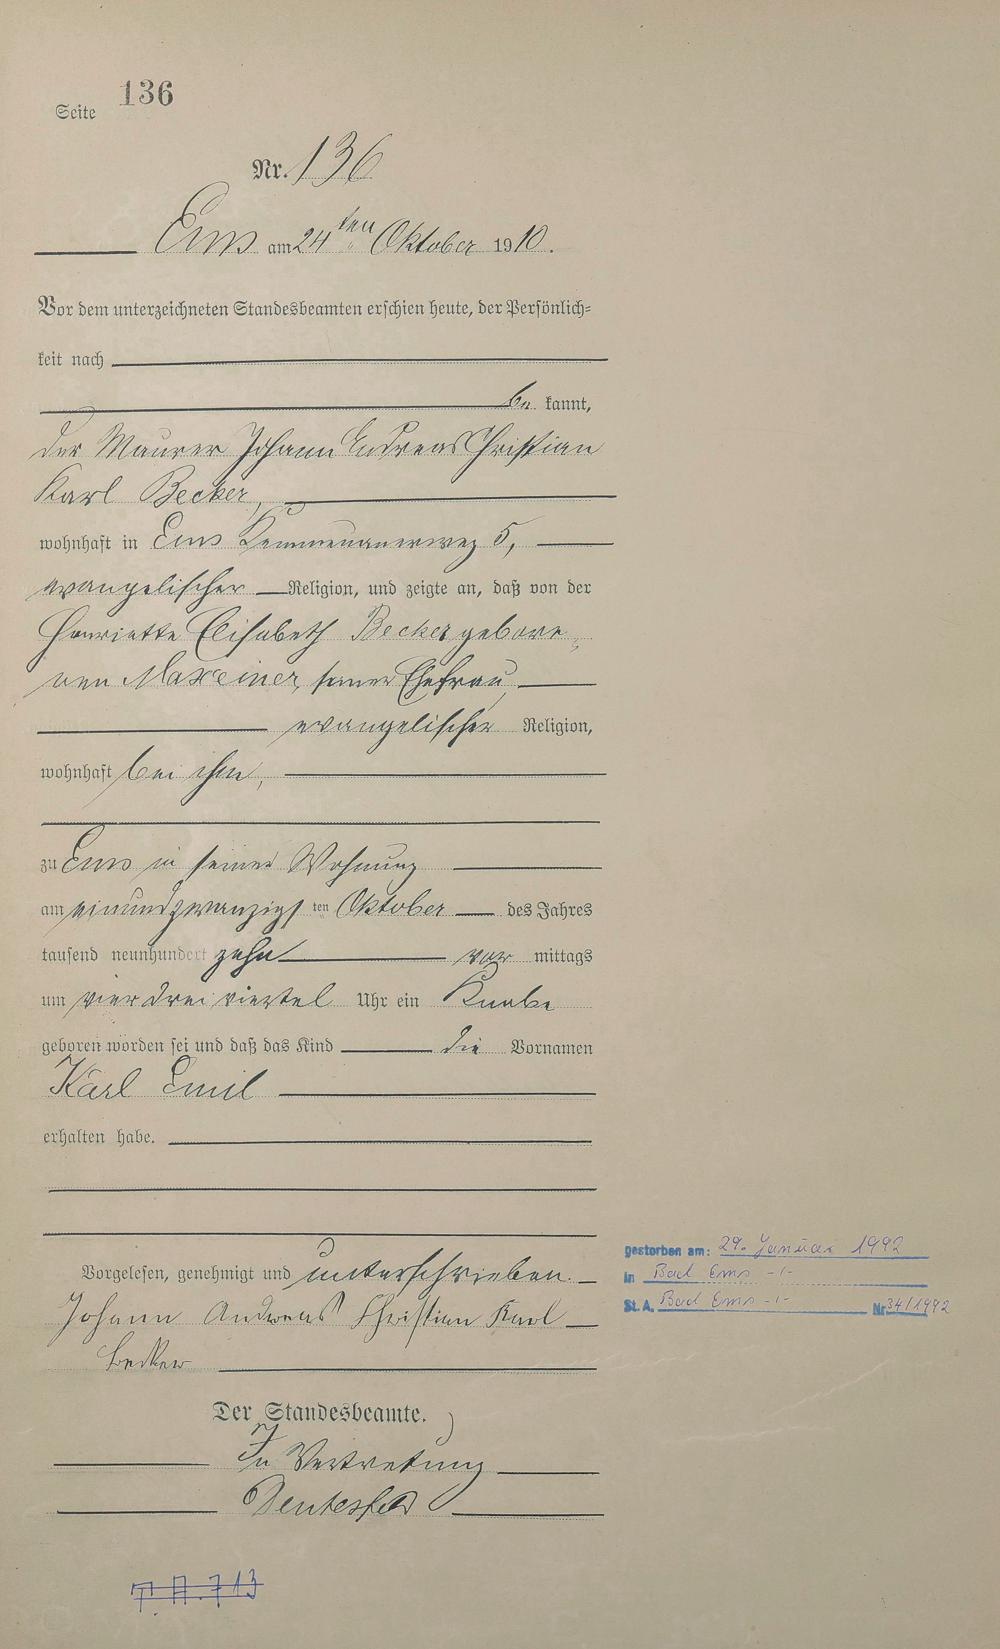 Seite 136
Nr. 136
Ems am 24ten Oktober 1910.
Vor dem unterzeichneten Standesbeamten erschien heute, der Persönlich-
keit nach
be kannt,
der Maurer Johann Andreas Christian
Karl Becker,
wohnhaft in Ems Kemmenauerweg 5,
evangelischer Religion, und zeigte an, daß von der
Henriette Elisabeth Becker gebore-
nen Maxeiner, seiner Ehefrau,
evangelischer Religion,
wohnhaft bei ihm,
zu Ems in seiner Wohnung
am einundzwanzigsten Oktober des Jahres
tausend neunhundert zehn vor mittags
um vier drei viertel Uhr ein Knabe
geboren worden sei und daß das Kind die Vornamen
Karl Emil
erhalten habe.
Vorgelesen, genehmigt und unterschrieben.
Johann Andreas Christian Karl
Becker
Der Standesbeamte.
In Vertretung
gestorben am: 29. Januar 1992
in Bad Ems -/-
St.A. Bad Ems -/- Nr 34/1992